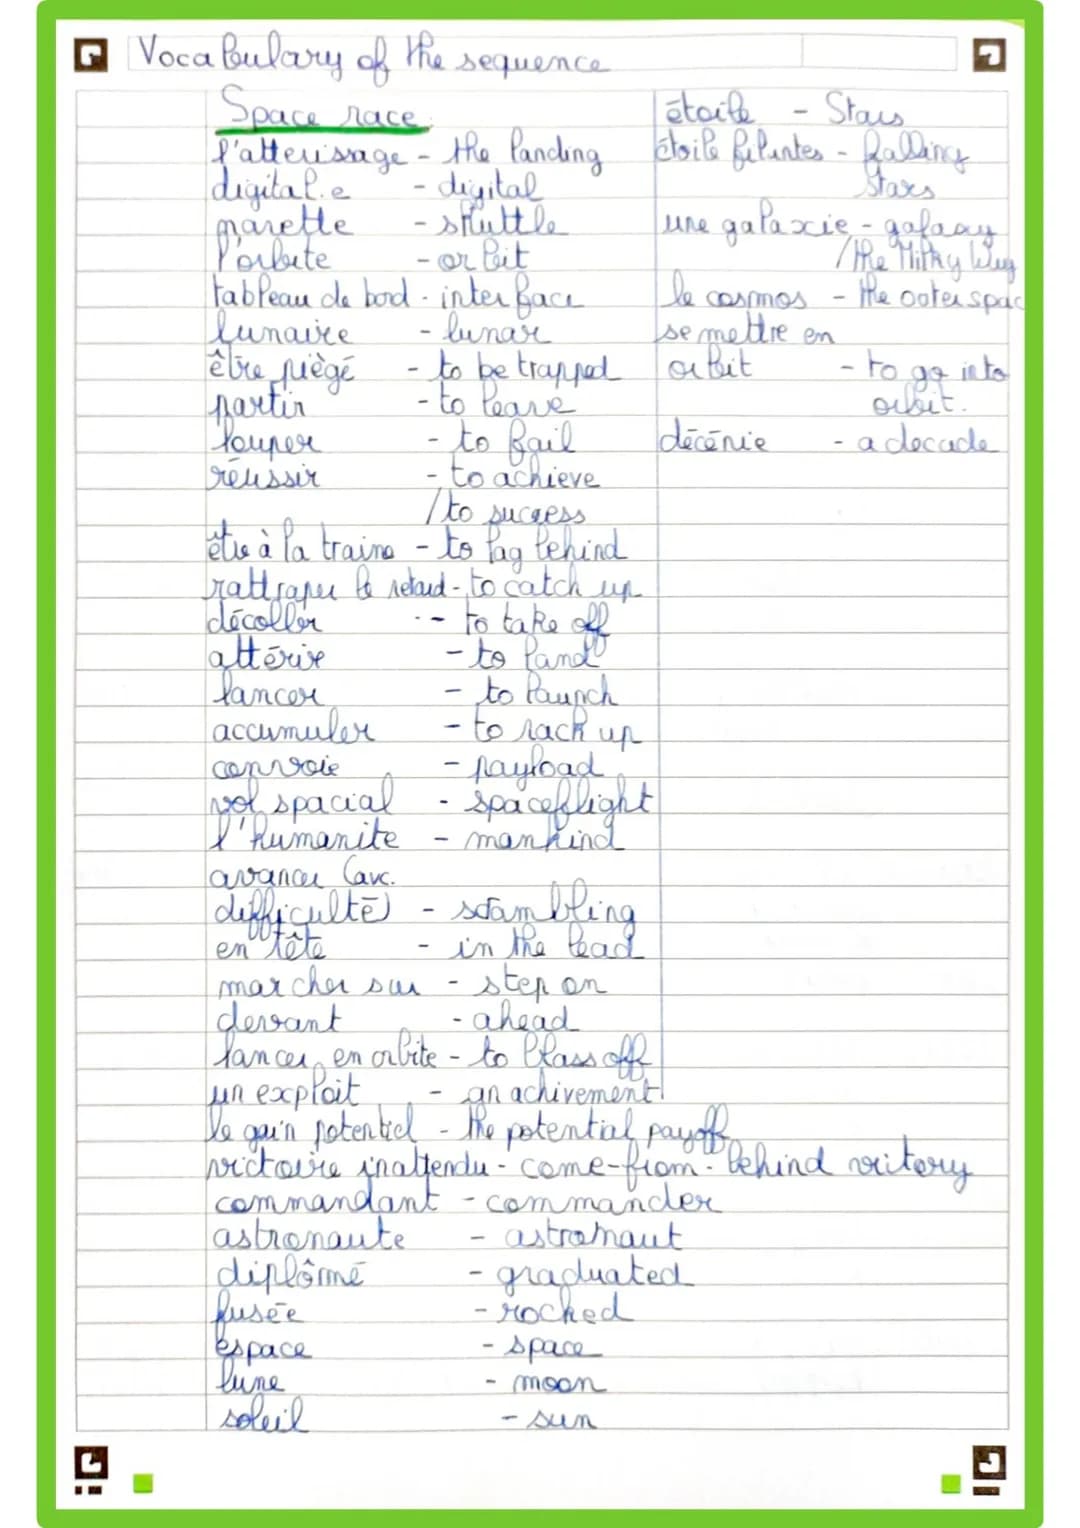 Vocabulary of the sequence
Space race
l'atterissage - the landing
digital.e - digital
navette - shuttle
l'orbite - orbit
tableau de bord - interface
lunaire - lunar
être piègé - to be trapped
partir - to leave
louper - to fail
réussir - to achieve
/to success
être à la traine - to lag behind
rattraper le retard - to catch up
décoller -- to take off
attérir - to land
lancer - to launch
accumuler - to rack up
convoie - payload
vol spacial - spaceflight
l'humanite - mankind
avancer (avc.
difficulté) - scrambling
en tête - in the lead
marcher sur - step on
devant - ahead
lancer en orbite - to blass off
un exploit - an achivement
le gain potentiel - the potential payoff
victoire inattendu - come-from-behind victory
commandant - commander
astronaute - astronaut
diplômé - graduated
fusée - rocked
espace - space
lune - moon
soleil - sun
étoile - Stars
étoile filantes - falling
Stars
une galaxie - galaxy
/the Milky Way
le cosmos - the outer spac
se mettre en
orbit - to go into
orbit.
décénie - a decade